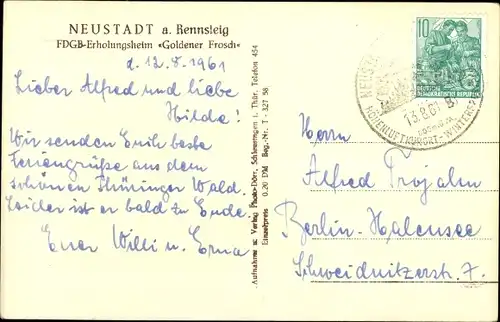 NEUSTADT a. Rennsteig
FDGB-Erholungsheim »Goldener Frosch«
d. 12.8.1961
Lieber Alfred und liebe
Hilde!
Wir senden Euch beste
Feriengrüße aus dem
schönen Thüringer Wald.
Leider ist er bald zu Ende.
Euer Willi u. Erna
Aufnahme u. Verlag Photo-Dörr, Schleusingen i. Thür. Telefon 454
Einzelpreis: 0,20 DM Reg.-Nr. T 327 58
10
DEUTSCHE
DEMOKRATISCHE REPUBLIK
NEUSTADT
13.8.61
HÖHENLUFTKURORT-WINTERSP
Herrn
Alfred
Berlin-Halensee
Schweidnitzerstr. 7.